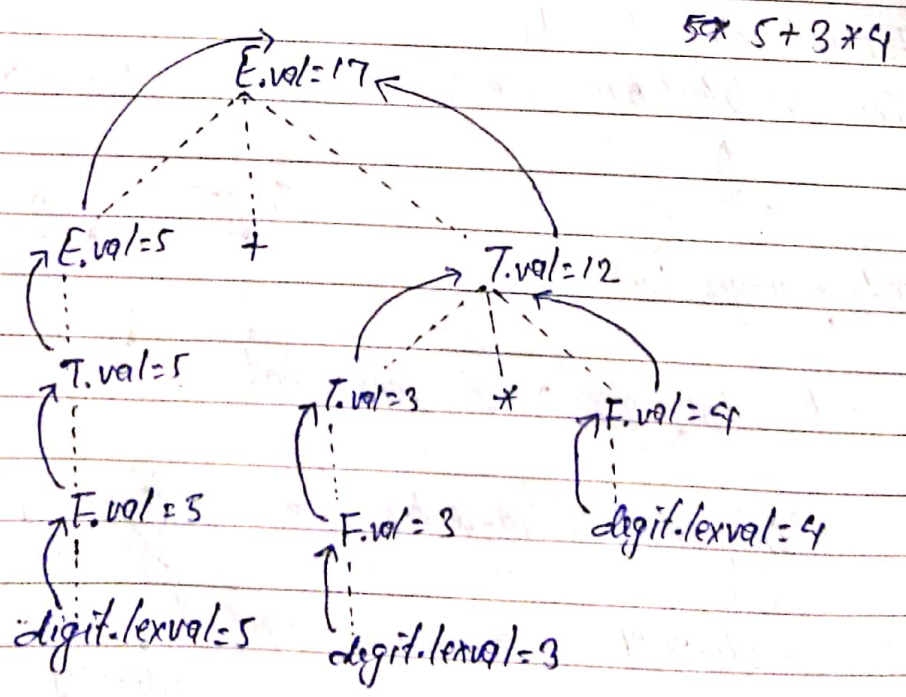 5+3*4
E.val=17
E.val=5 + T.val=12
T.val=5 T.val=3 * F.val=4
F.val=5 F.val=3 digit.lexval=4
digit.lexval=5 digit.lexval=3